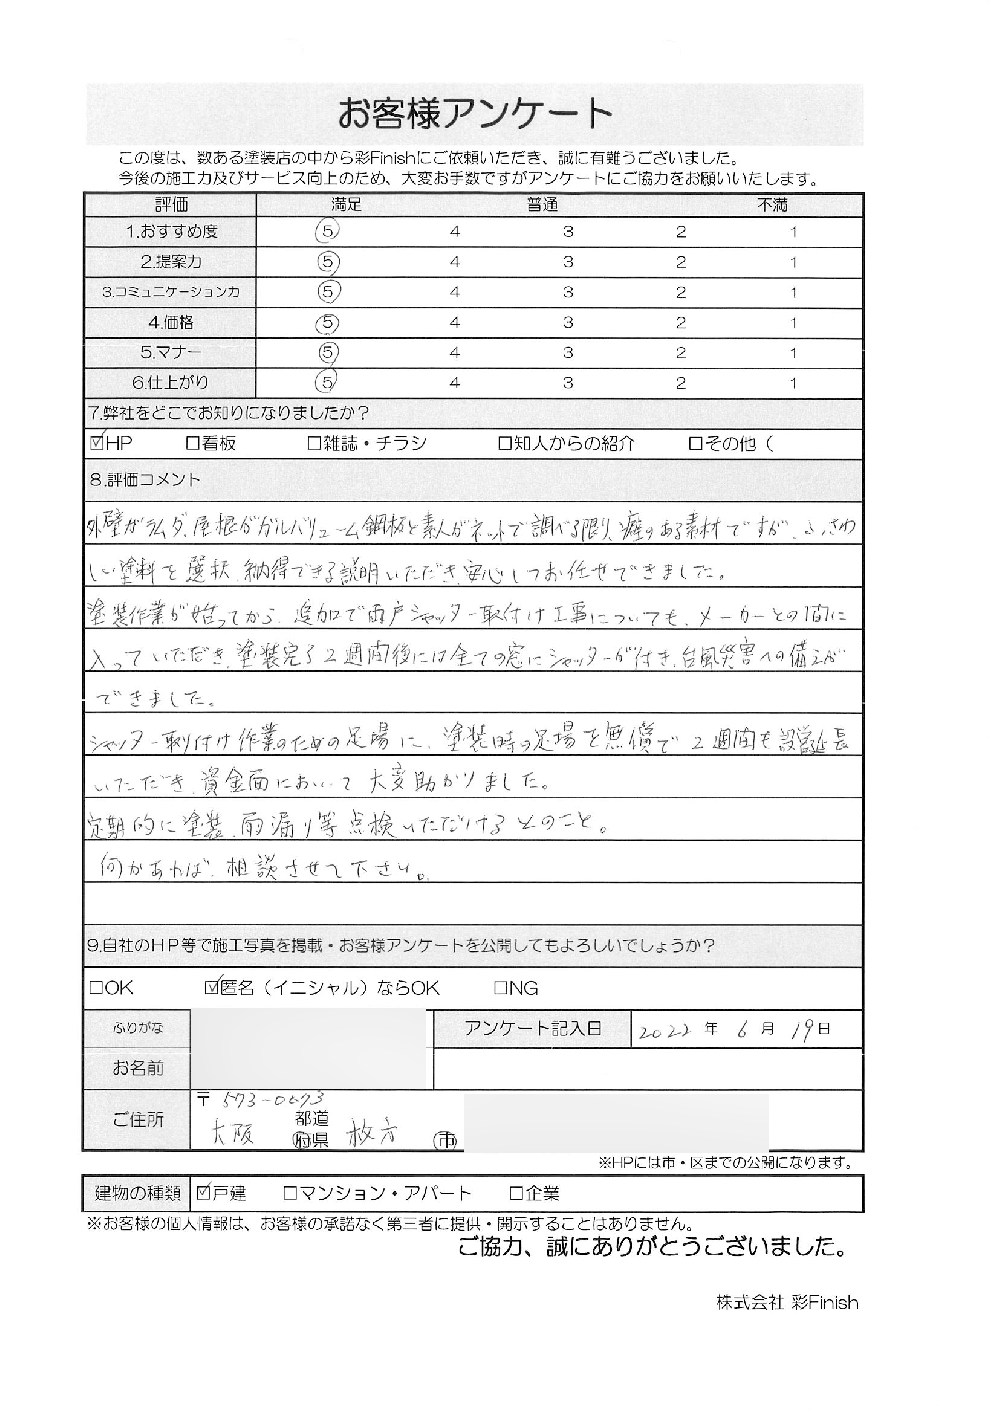 お客様アンケート
この度は、数ある塗装店の中から彩Finishにご依頼いただき、誠に有難うございました。
今後の施工力及びサービス向上のため、大変お手数ですがアンケートにご協力をお願いいたします。
評価 満足 普通 不満
1.おすすめ度 5 4 3 2 1
2.提案力 5 4 3 2 1
3.コミュニケーション力 5 4 3 2 1
4.価格 5 4 3 2 1
5.マナー 5 4 3 2 1
6.仕上がり 5 4 3 2 1
7.弊社をどこでお知りになりましたか?
☑HP □看板 □雑誌・チラシ □知人からの紹介 □その他(
8.評価コメント
外壁がラムダ、屋根がガルバリューム鋼板と素人がネットで調べる限り、癖のある素材ですが、ふさわ
しい塗料を選択、納得できる説明いただき、安心しつお任せできました。
塗装作業が始ってから、追加で雨戸シャッター取付け工事についても、メーカーとの間に
入っていただき、塗装完了2週間後には全ての窓にシャッターが付き、台風災害への備えが
できました。
シャッター取り付け作業のための足場に、塗装時の足場を無償で2週間も設営延長
いただき、資金面において大変助かりました。
定期的に塗装、雨漏り等点検いただけるとのこと。
何かあれば、相談させて下さい。
9.自社のHP等で施工写真を掲載・お客様アンケートを公開してもよろしいでしょうか?
□OK ☑匿名(イニシャル)ならOK □NG
ふりがな アンケート記入日 2022年 6月 19日
お名前
ご住所 〒573-0093
大阪 都道府県 枚方 市
※HPには市・区までの公開になります。
建物の種類 ☑戸建 □マンション・アパート □企業
※お客様の個人情報は、お客様の承諾なく第三者に提供・開示することはありません。
ご協力、誠にありがとうございました。
株式会社 彩Finish